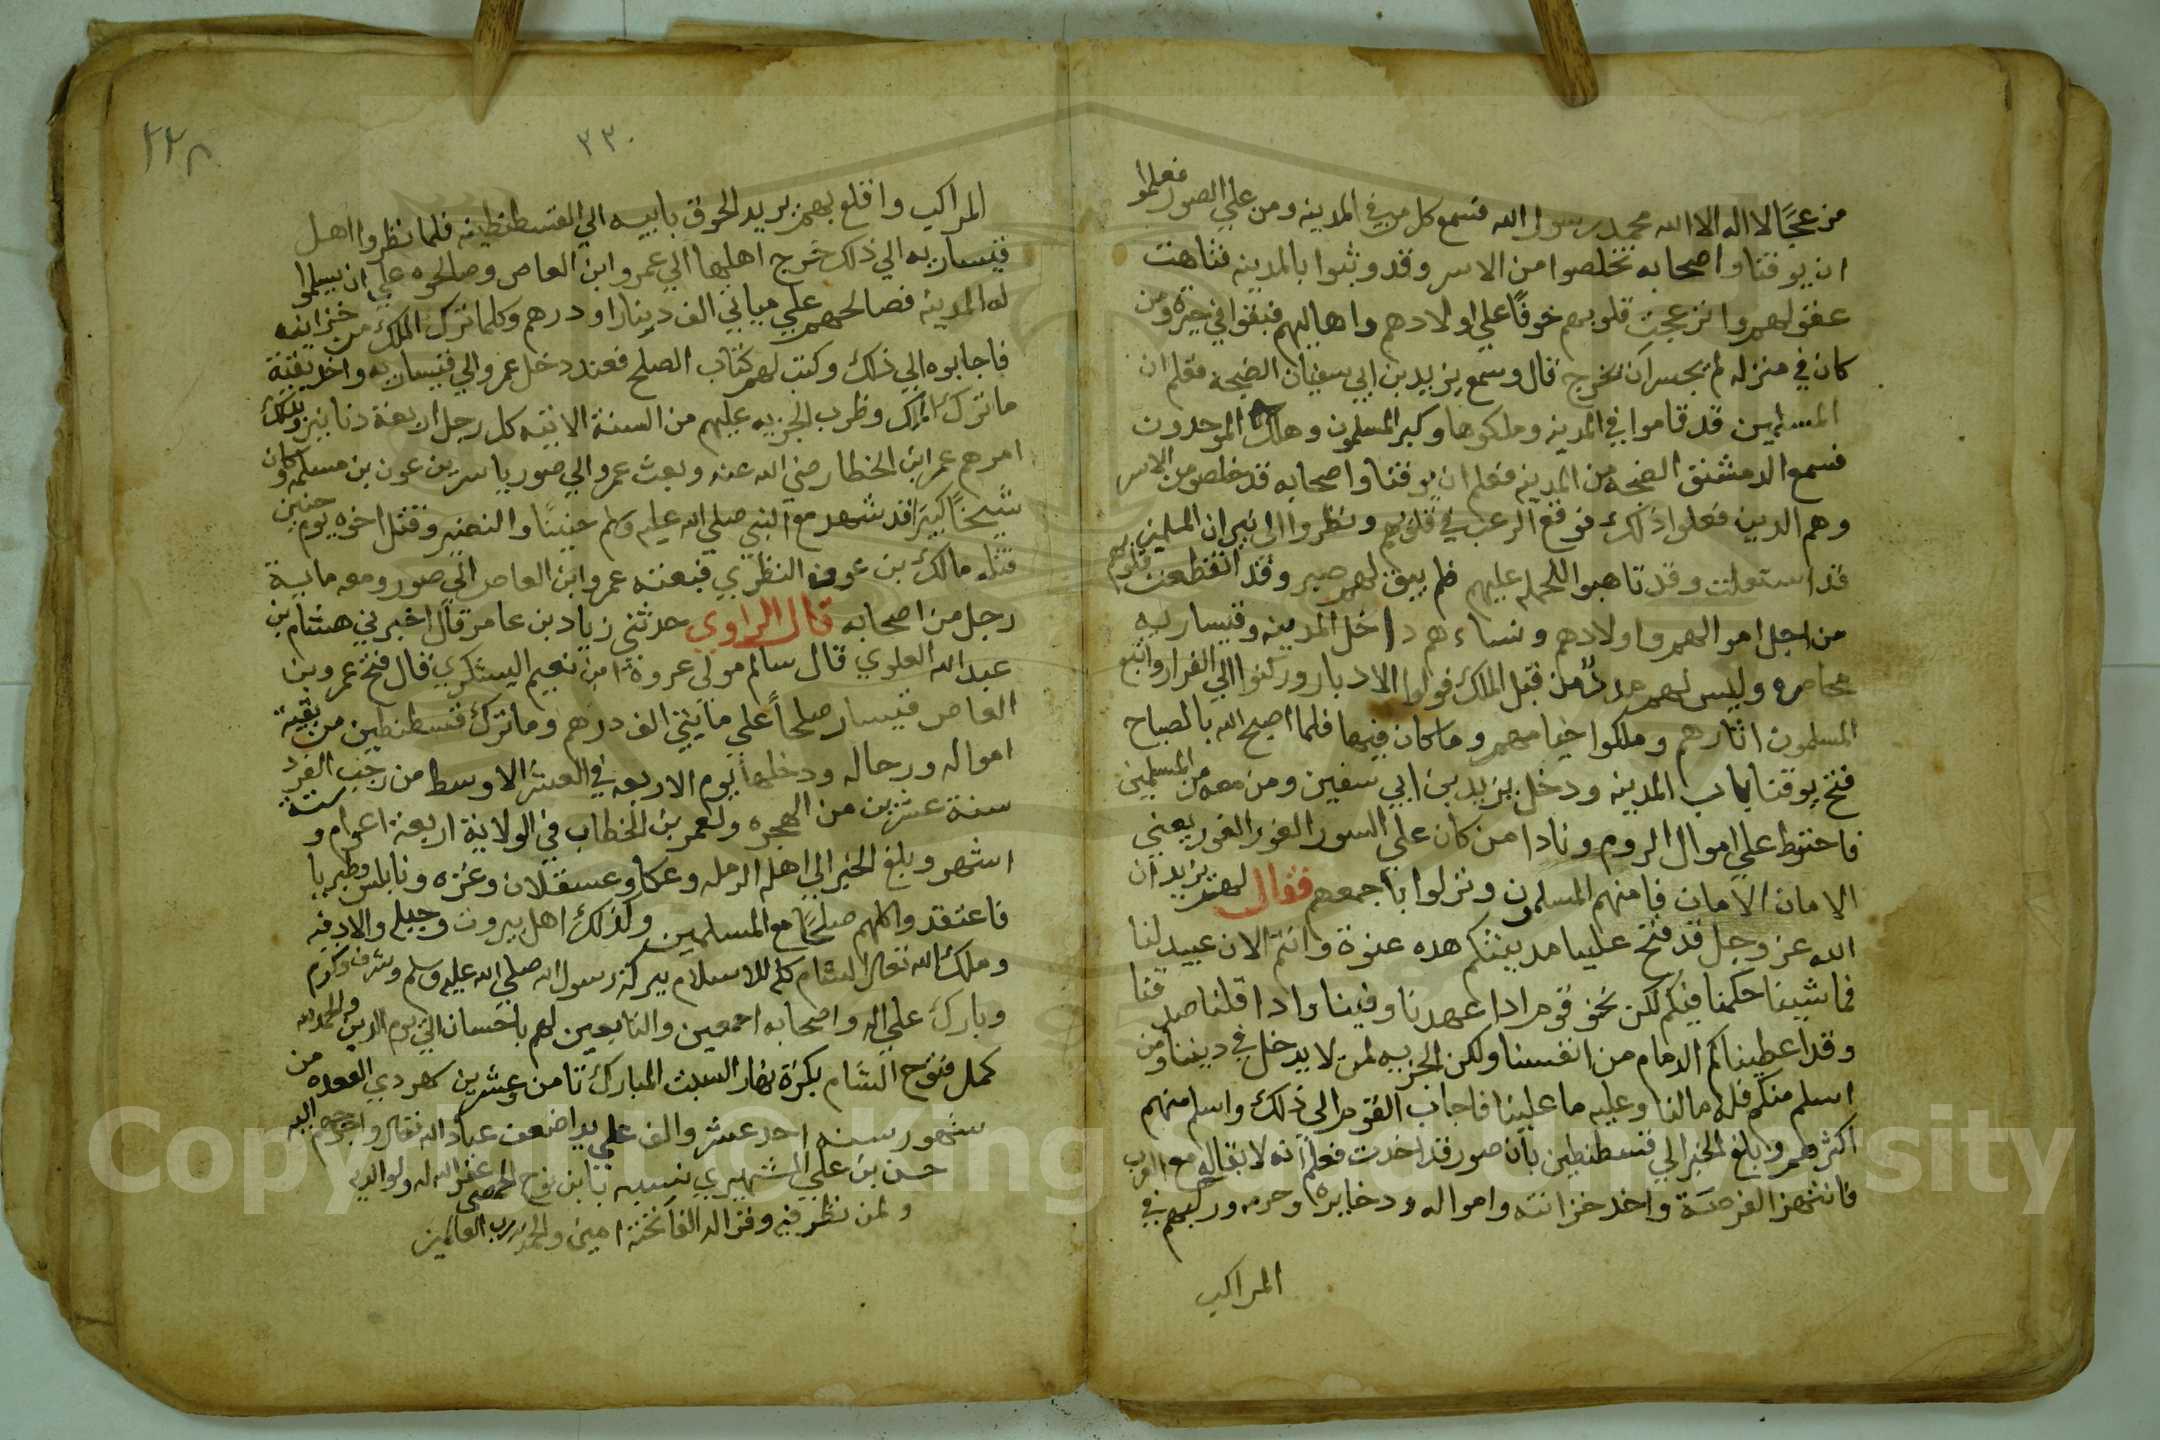 مزعجًا لا اله الا الله محمد رسول الله فسمع كل من في المدينه ومن علي الصور فعلموا
ان يوقنا واصحابه تخلصوا من الاسر وقد وثبوا بالمدينه فتاهت
عقولهم وانزعجت قلوبهم خوفًا علي اولادهم واهاليهم فبقوا في حيرة ومن
كان في منزله لم يجسر ان يخرج قال وسمع يزيد بن ابي سفيان الضجه فعلم ان
المسلمين قد قاموا في المدينه وملكوها وكبر المسلمون وهلل الموحدون
فسمع الدمشتق الضجه من المدينه فعلم ان يوقنا واصحابه قد خلصو من الاسر
وهم الدين فعلوا ذلك فوقع الرعب في قلبهم ونظروا الي نيران المسلمين
قد اشتعلت وقد تاهبوا للحمله عليهم فلم يبق لهم صبر وقد انقطعت قلوبهم
من اجل اموالهم واولادهم ونساءهم داخل المدينه وقيساريه
محاصره وليس لهم مدد من قبل الملك فولوا الادبار وركنوا الي الفرار واتبع
المسلمون اثارهم وملكوا خيامهم وما كان فيها فلما اصبح الله بالصباح
فتح يوقنا باب المدينه ودخل يزيد بن ابي سفين ومن معه من المسلمين
فاحتوط علي اموال الروم ونادا من كان علي السور الغور الغور يعني
الامان الامان فامنهم المسلمون ونزلوا باجمعهم فقال لهم يزيد ان
الله عز وجل قد فتح علينا مدينتكم هده عنوة وانتم الان عبيد لنا
فما شينا حكمنا فيكم لكن نحن قوم ادا عهدنا وفينا وادا قلنا صدقنا
وقد اعطيناكم الدمام من انفسنا ولكن الجزيه لمن لا يدخل في ديننا ومن
اسلم منكم فله مالنا وعليه ما علينا فاجاب القوم الي ذلك واسلم منهم
اكثرهم وبلغ الخبر الي قسطنطين بان صور قد اخدت فعلم انه لا بقا له مع العرب
فانتهز الفرصة واخد خزانته وامواله ودخايره وحرمه وركبهم في
المراكب
٢٣٠
٢٢٨
المراكب واقلع بهم يريد اللحوق بابيه الي القسطنطينه فلما نظروا اهل
قيساريه الي ذلك خرج اهلها الي عمرو ابن العاص وصالحوه علي ان يسلموا
له المدينه فصالحهم علي مياتي الف دينارا ودرهم وكلما ترك الملك من خزاينه
فاجابوه الي ذلك وكتب لهم كتاب الصلح فعند دخل عمرو الي قيساريه واخد بقية
ما ترك الملك وظرب الجزيه عليهم من السنة الاتيه كل رجل اربعة دنانير وبذلك
امرهم عمر ابن الخطاب رضي الله عنه وبعث عمرو الي صور ياسر بن عون بن مسلمه وكان
شيخًا كبيرًا قد شهد مع النبي صلي الله عليه وسلم حنينًا والنضير وقتل اخوه يوم حنين
قتله مالك بن عوف النظري فبعثه عمرو ابن العاص الي صور ومعه ماية
رجل من اصحابه قال الراوي حدثني زياد بن عامر قال اخبرني هشام بن
عبد الله العلوي قال سالم مولى عروة ابن نعيم اليشكري قال فتح عمرو بن
العاص قيسار صلحاً علي مايتي الف درهم وما ترك قسطنطين من بقية
امواله ورحاله ودخلها يوم الاربعه في العشر الاوسط من رجب الفرد
سنة عشرين من الهجره ولعمر بن الخطاب في الولاية اربعة اعوام وستة
اشهر وبلغ الخبر الي اهل الرمله وعكا وعسقلان وغزه ونابلس وطبريا
فاعتقدوا كلهم صلحًا مع المسلمين وكذلك اهل بيروت وجبله والادقيه
وملك الله تعالى الشام كله للاسلام ببركة رسول الله صلي الله عليه وسلم وشرف وكرم
وبارك علي اله واصحابه اجمعين والتابعين لهم باحسان الي يوم الدين والحمد لله
كمل فتوح الشام بكرة نهار السبت المبارك تامن وعشرين شهر دي القعده من
شهور سنه احد عشر والف علي يد اضعف عباد الله تعالى واحوجهم اليه
حسن بن علي الشهير بنسبه بابن نوح الحمصي غفر الله له ولوالديه
ولمن نظر فيه وقرا له الفاتحة امين والحمد لله رب العالمين
Copyright © King Saud University